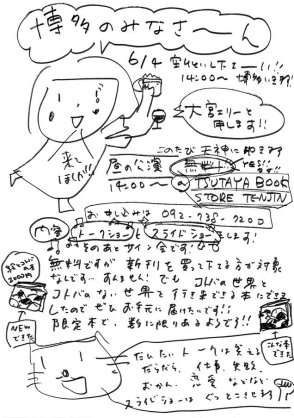 博多のみなさ〜ん
6/4 空けといて下さーい!!
14:00〜 博多にいます!
大宮エリーと
申します!!
来て
ほしいカ!!
このたび 天神に行きます
昼の公演 無料!! YES!!
14:00〜 @ TSUTAYA BOOK
STORE TENJIN
お申し込みは 092-738-7200
内容 トークショーと スライドショーをします!
そのあとサイン会です!
無料ですが 新刊を買って下さる方が対象
なんです…すんません! でも コトバの世界と
コトバのない世界を行き来できる本にできま
したので ぜひお手元に届けたいです!!
限定本で、数に限りあるようです!!
NEW
できた
こんな本
できた
だいたい トークは笑える
だろうか、仕事、失敗、
おかん、恋愛 などなど
スライドショーは ぐっとこさせます